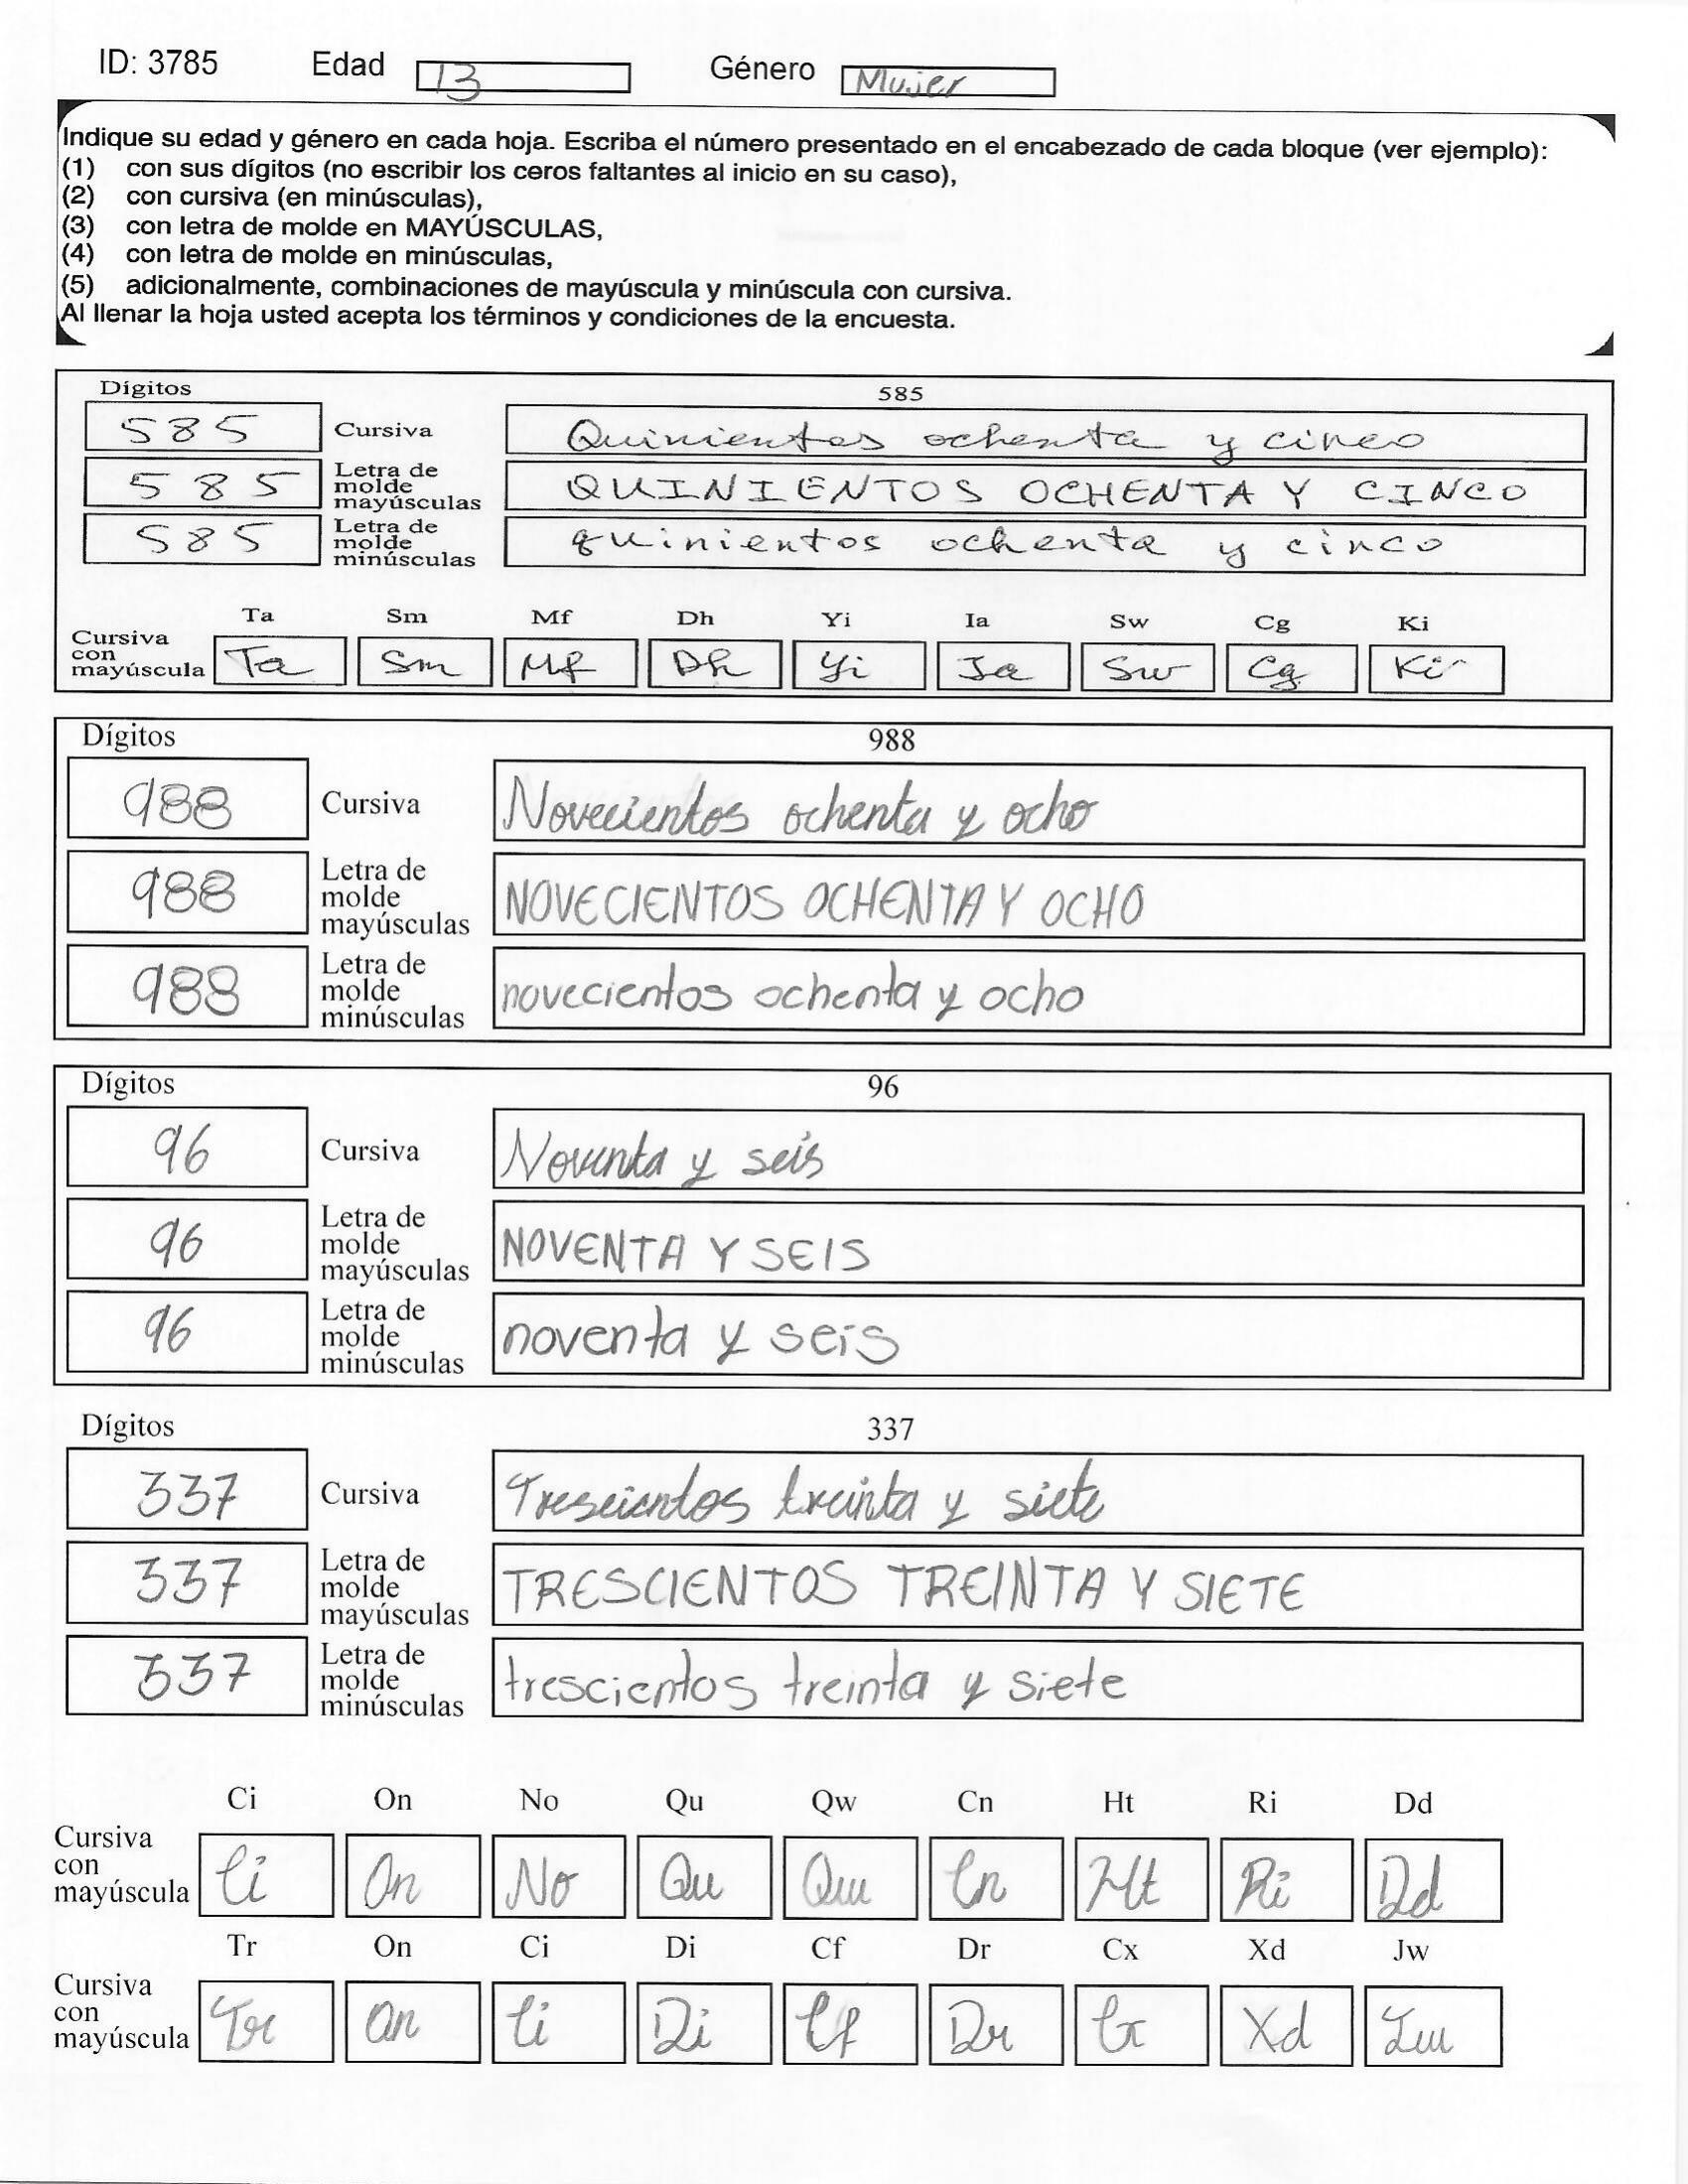 ID: 3785 Edad 13 Género Mujer
Indique su edad y género en cada hoja. Escriba el número presentado en el encabezado de cada bloque (ver ejemplo):
(1) con sus dígitos (no escribir los ceros faltantes al inicio en su caso),
(2) con cursiva (en minúsculas),
(3) con letra de molde en MAYÚSCULAS,
(4) con letra de molde en minúsculas,
(5) adicionalmente, combinaciones de mayúscula y minúscula con cursiva.
Al llenar la hoja usted acepta los términos y condiciones de la encuesta.
Dígitos 585
585 Cursiva Quinientos ochenta y cinco
585 Letra de molde mayúsculas QUINIENTOS OCHENTA Y CINCO
585 Letra de molde minúsculas quinientos ochenta y cinco
Ta Sm Mf Dh Yi Ia Sw Cg Ki
Cursiva con mayúscula Ta Sm Mf Dh Yi Ia Sw Cg Ki
Dígitos 988
988 Cursiva Novecientos ochenta y ocho
988 Letra de molde mayúsculas NOVECIENTOS OCHENTA Y OCHO
988 Letra de molde minúsculas novecientos ochenta y ocho
Dígitos 96
96 Cursiva Noventa y seis
96 Letra de molde mayúsculas NOVENTA Y SEIS
96 Letra de molde minúsculas noventa y seis
Dígitos 337
337 Cursiva Trescientos treinta y siete
337 Letra de molde mayúsculas TRESCIENTOS TREINTA Y SIETE
337 Letra de molde minúsculas trescientos treinta y siete
Ci On No Qu Qw Cn Ht Ri Dd
Cursiva con mayúscula Ci On No Qu Qw Cn Ht Ri Dd
Tr On Ci Di Cf Dr Cx Xd Jw
Cursiva con mayúscula Tr On Ci Di Cf Dr Cx Xd Jw